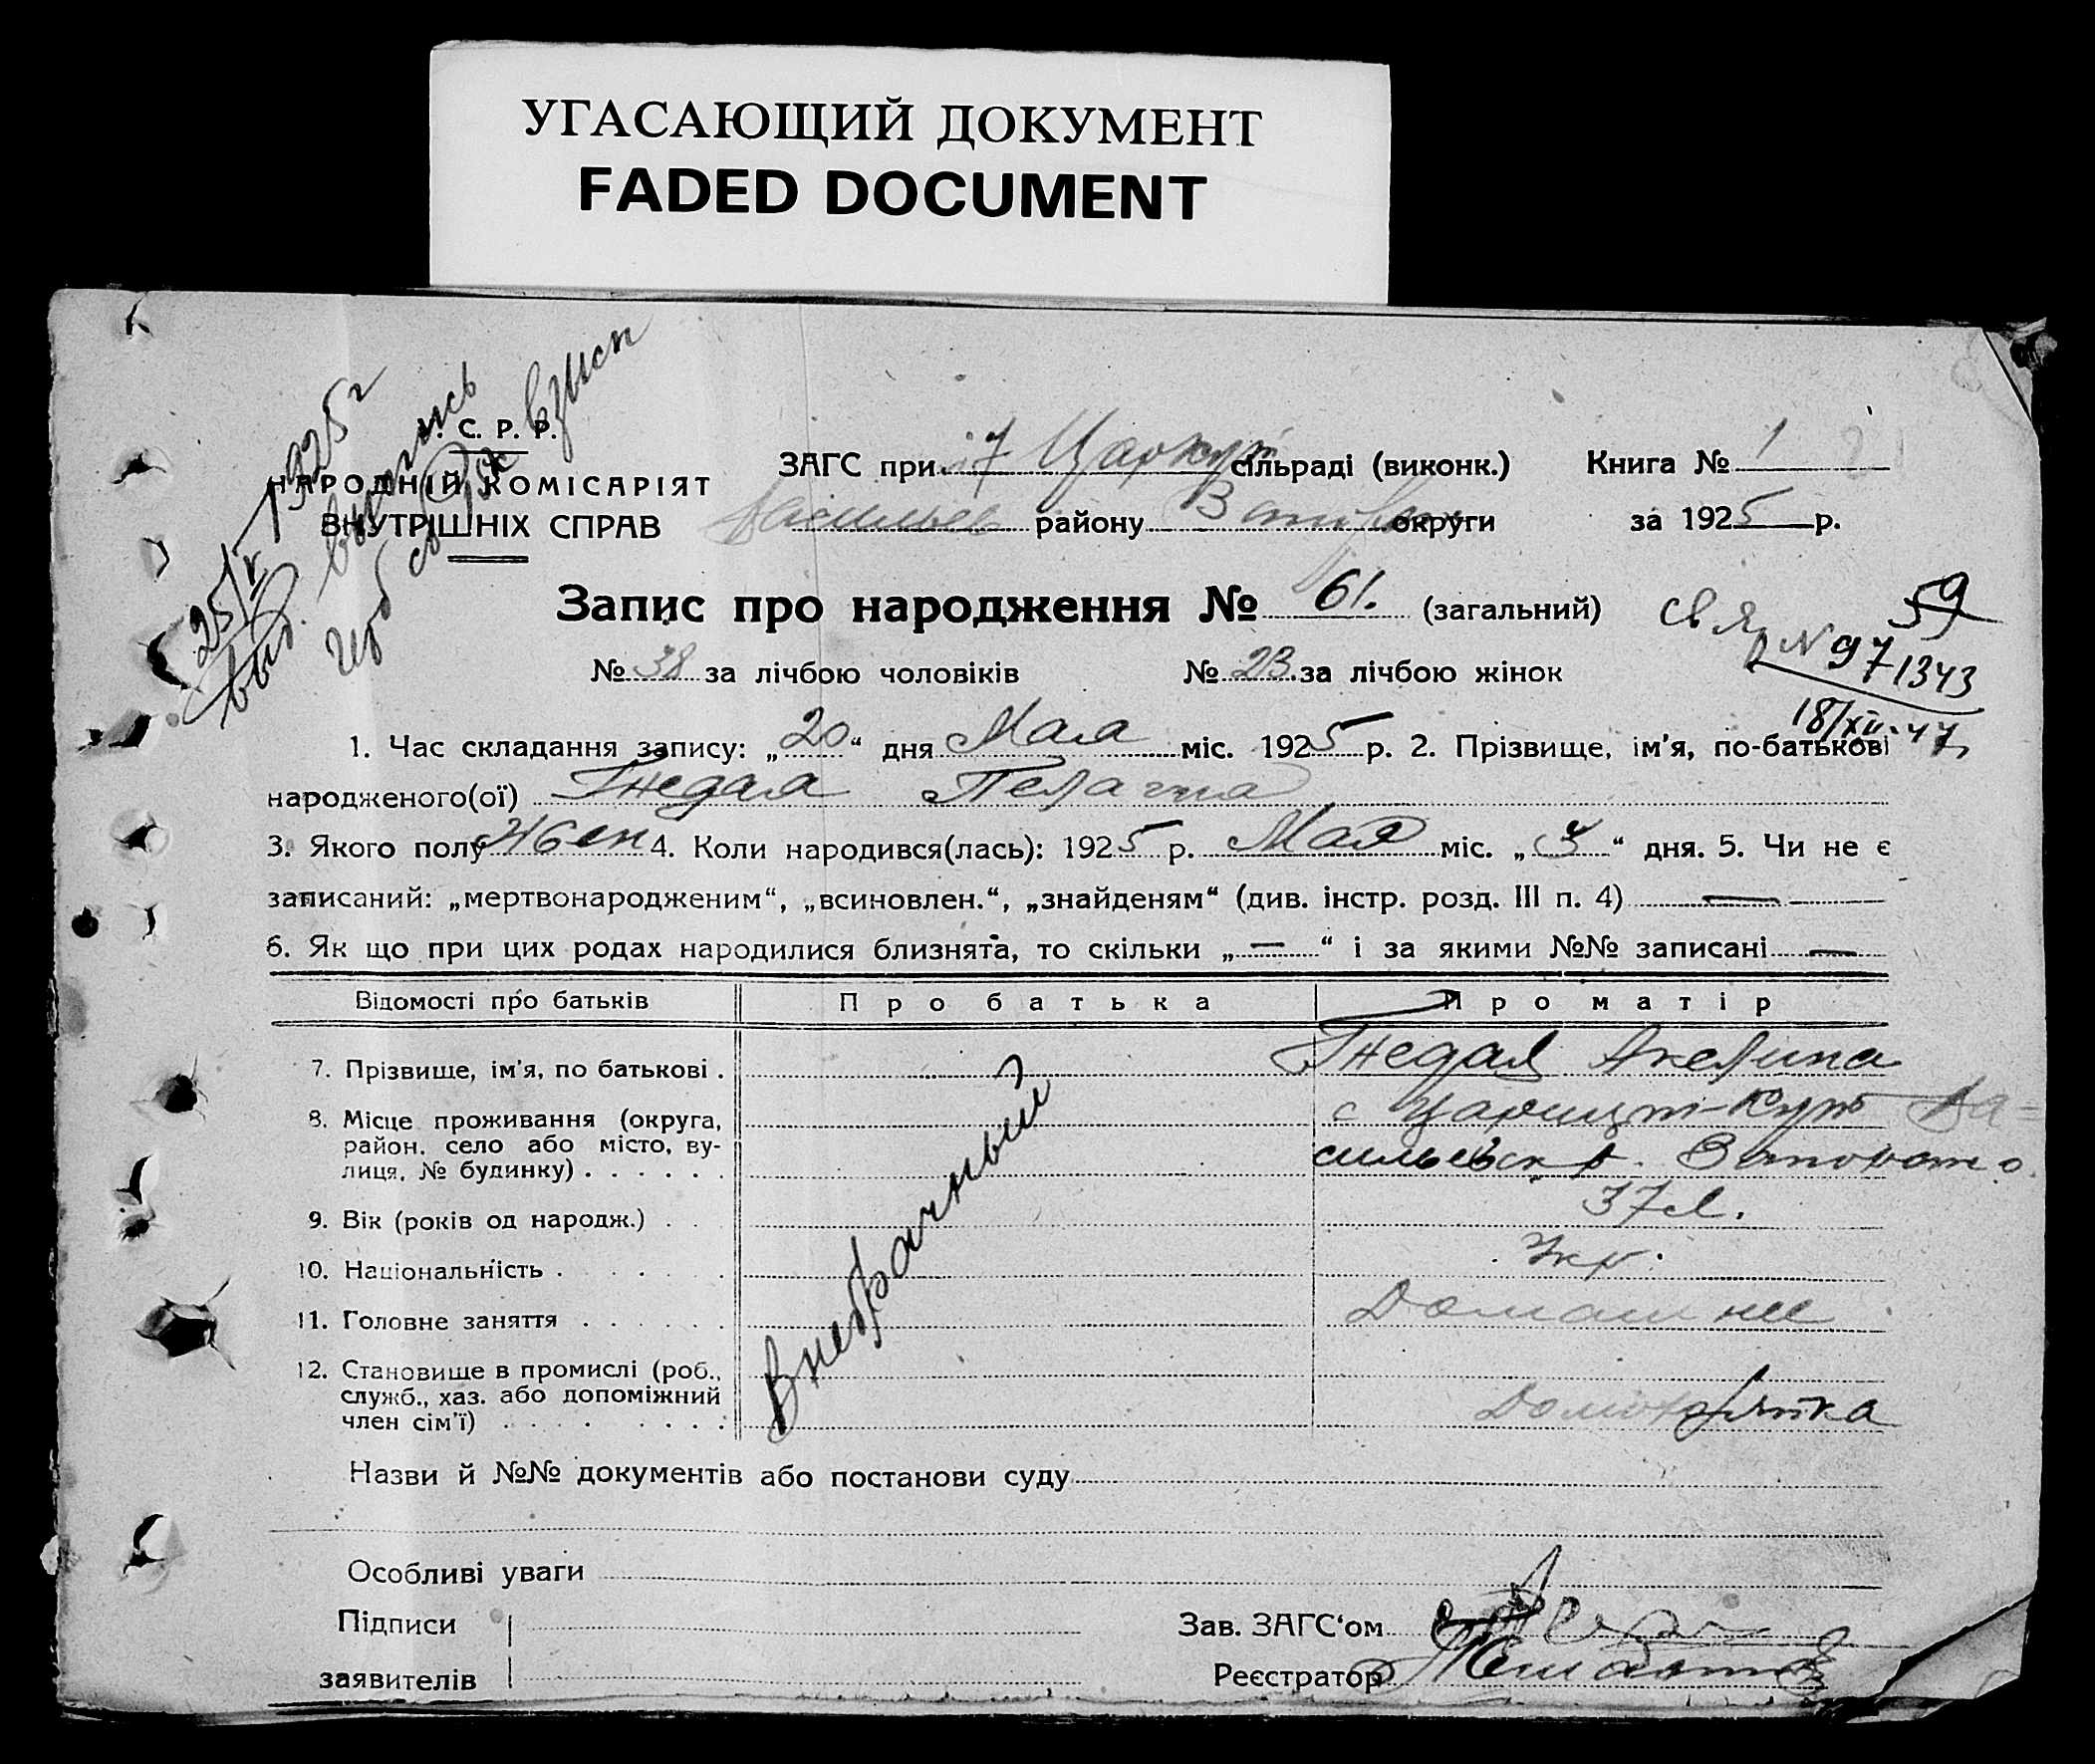 УГАСАЮЩИЙ ДОКУМЕНТ
FADED DOCUMENT
25/V 1925 г
выд. выпись
герб сбор взыск
У. С. Р. Р.
НАРОДНІЙ КОМІСАРІЯТ
ВНУТРІШНІХ СПРАВ
ЗАГС при Царкут сільраді (виконк.) Книга № 1
Васильев району округи за 1925 р.
Запис про народження № 61. (загальний)
59
№ 97 1343
18/XII-47
№ 38 за лічбою чоловіків № 23 за лічбою жінок
1. Час складання запису: „20“ дня Мая міс. 1925 р. 2. Прізвище, ім'я, по-батькові
народженого(ої) Гнедая Пелагия
3. Якого полу жен 4. Коли народився(лась): 1925 р. Мая міс. „3“ дня. 5. Чи не є
записаний: „мертвонародженим“, „всиновлен.“, „знайденям“ (див. інстр. розд. III п. 4) —
6. Як що при цих родах народилися близнята, то скільки „—“ і за якими №№ записані —
Відомості про батьків Про батька Про матір
7. Прізвище, ім'я, по батькові . Гнедая Акелина
8. Місце проживання (округа, с Царицын-Кут Ва=
район, село або місто, ву-
лиця, № будинку) . . . . . . сильевск р.
Внебрачный
9. Вік (років од народж.) . . . 37 л.
10. Національність . . . . . Укр.
11. Головне заняття . . . . . . Домашнее
12. Становище в промислі (роб.,
служб., хаз. або допоміжний
член сім'ї) . . . . . . . .
Назви й №№ документів або постанови суду
Особливі уваги
Підписи Зав. ЗАГС'ом
заявителів Реєстратор